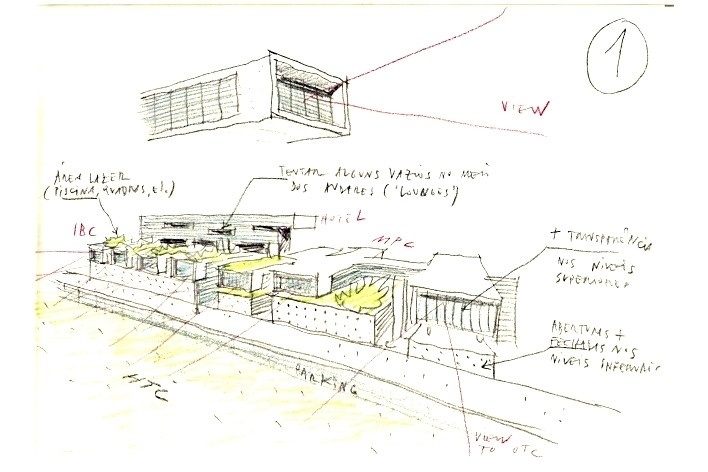 1
VIEW
ÁREA LAZER
(PISCINA, QUADRAS, Etc)
TENTAR ALGUNS VAZIOS NO MEIO
DOS ANDARES ("LOUNGES")
HOTEL
IBC
MPC
+ TRANSPARÊNCIA
NOS NÍVEIS
SUPERIORES
ABERTURAS +
FECHADAS NOS
NÍVEIS INFERIORES
HTC
PARKING
VIEW
TO OTC